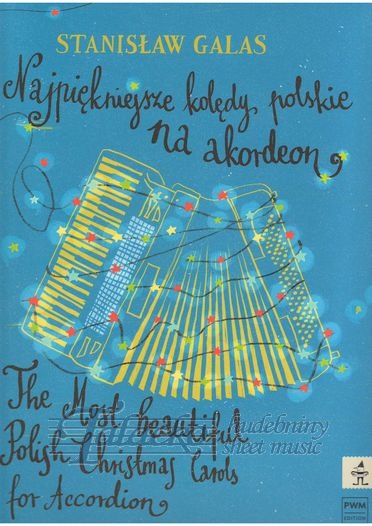 STANISŁAW GALAS
Najpiękniejsze kolędy polskie
na akordeon
The Most beautiful
Polish Christmas Carols
for Accordion
hudebniny
sheet music
PWM
EDITION